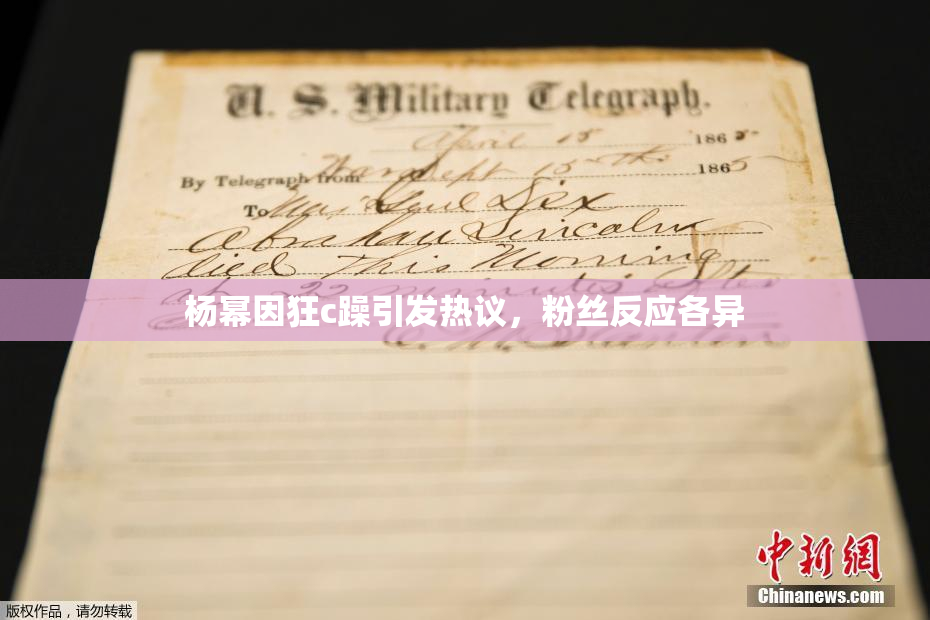 U. S. Military Telegraph.
April 15 1865
By Telegraph from War Dept 15th 1865
To Maj Genl Dix
Abraham Lincoln
died This Morning
at 22 minutes after
杨幂因狂c躁引发热议，粉丝反应各异
中新网
Chinanews.com
版权作品，请勿转载